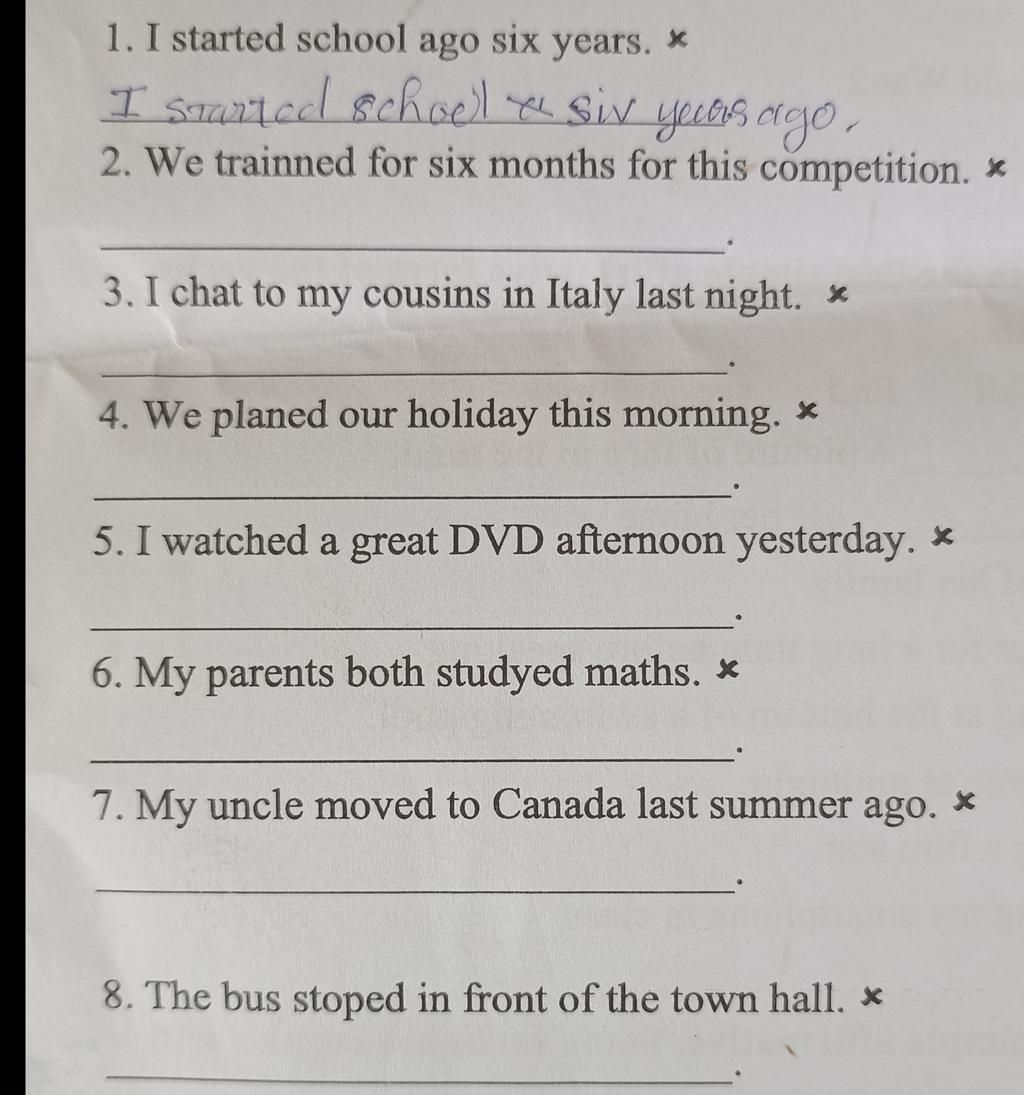 1. I started school ago six years. ×
I started school siv years ago.
2. We trainned for six months for this competition. ×
3. I chat to my cousins in Italy last night. ×
4. We planed our holiday this morning. ×
5. I watched a great DVD afternoon yesterday. ×
6. My parents both studyed maths. ×
7. My uncle moved to Canada last summer ago. ×
8. The bus stoped in front of the town hall. ×